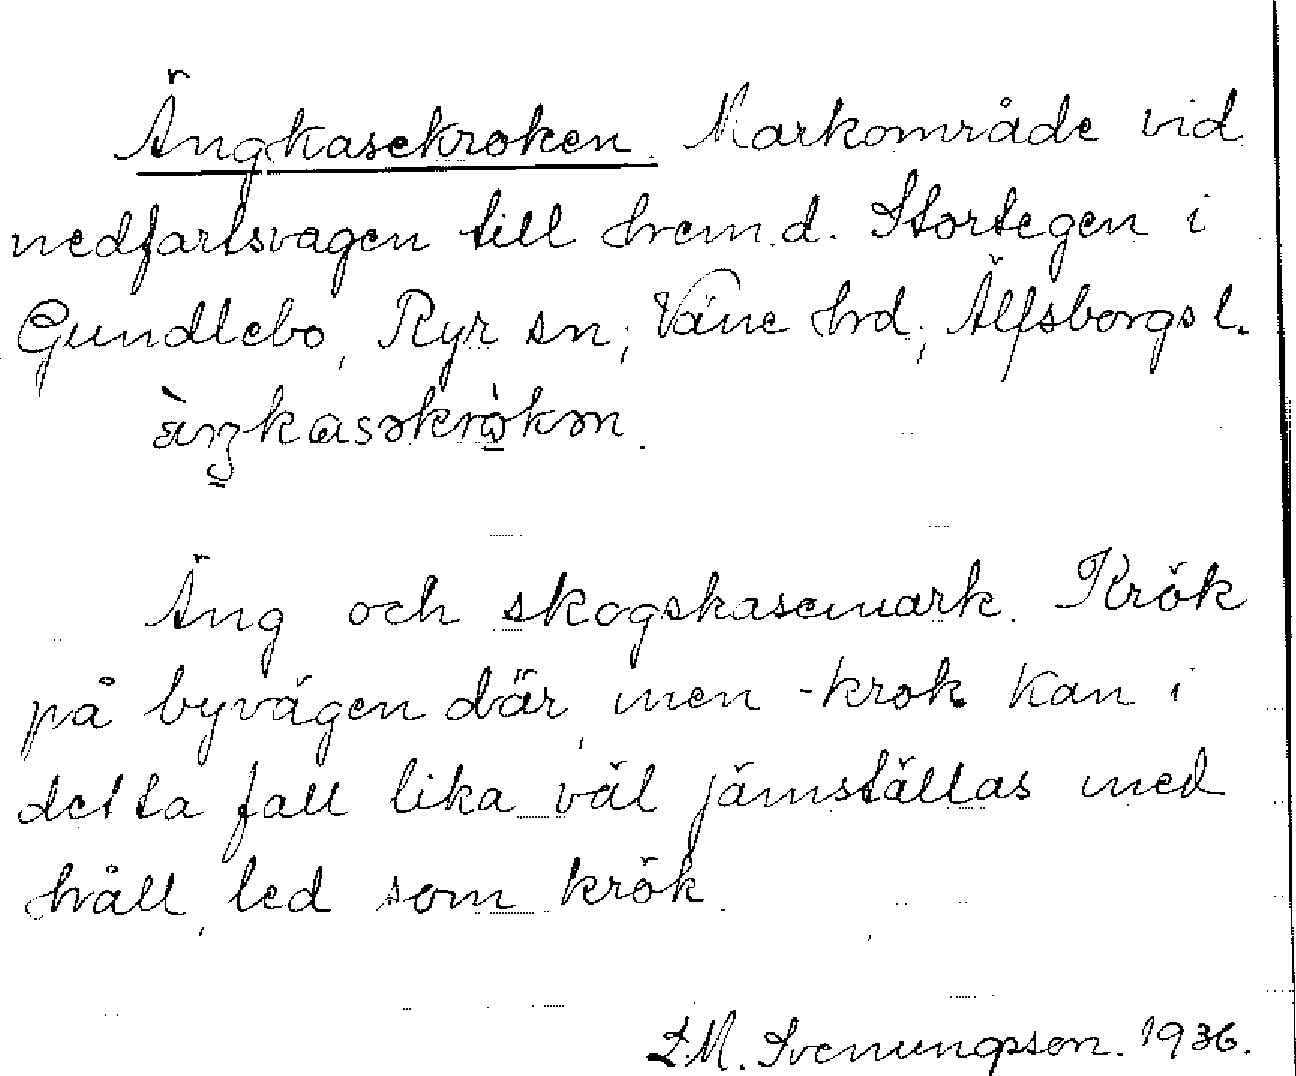 Ängkasekroken. Markområde vid
nedfartsvägen till hemd. Stortegen i
Gundlebo, Ryr sn, Väne hd, Älfsborgs l.
Äng och skogskasemark. Krök
på byvägen där, men -krok kan i
detta fall lika väl jämställas med
håll, led som krök.
L.M. Svenungsson. 1936.